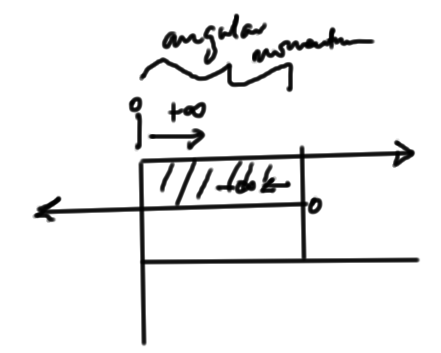 angular
momentum
0
+∞
+∞
0